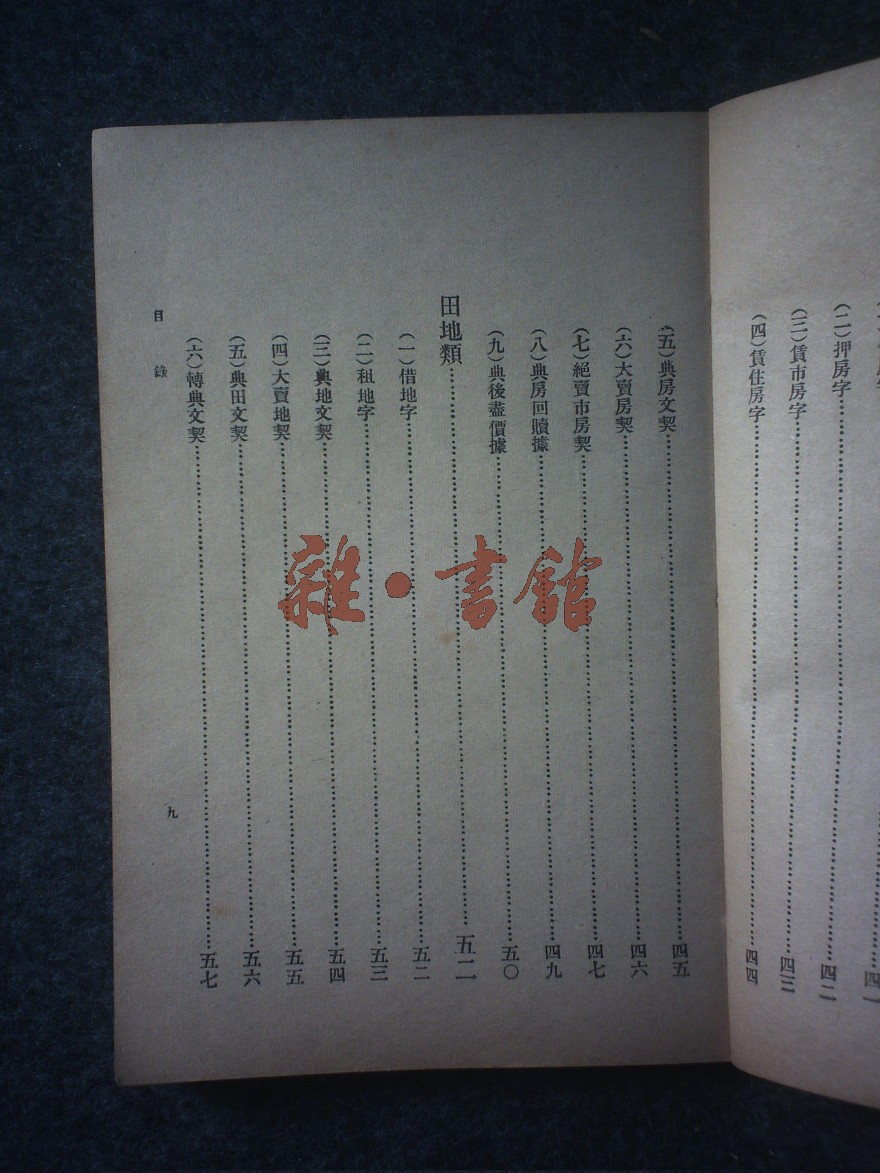 (二)押房字……四二
(三)賃市房字……四三
(四)賃住房字……四四
(五)典房文契……四五
(六)大賣房契……四六
(七)絕賣市房契……四七
(八)典房回贖據……四九
(九)典後盡價據……五〇
田地類……五二
(一)借地字……五二
(二)租地字……五三
(三)典地文契……五四
(四)大賣地契……五五
(五)典田文契……五六
(六)轉典文契……五七
目錄
九
雜·書館